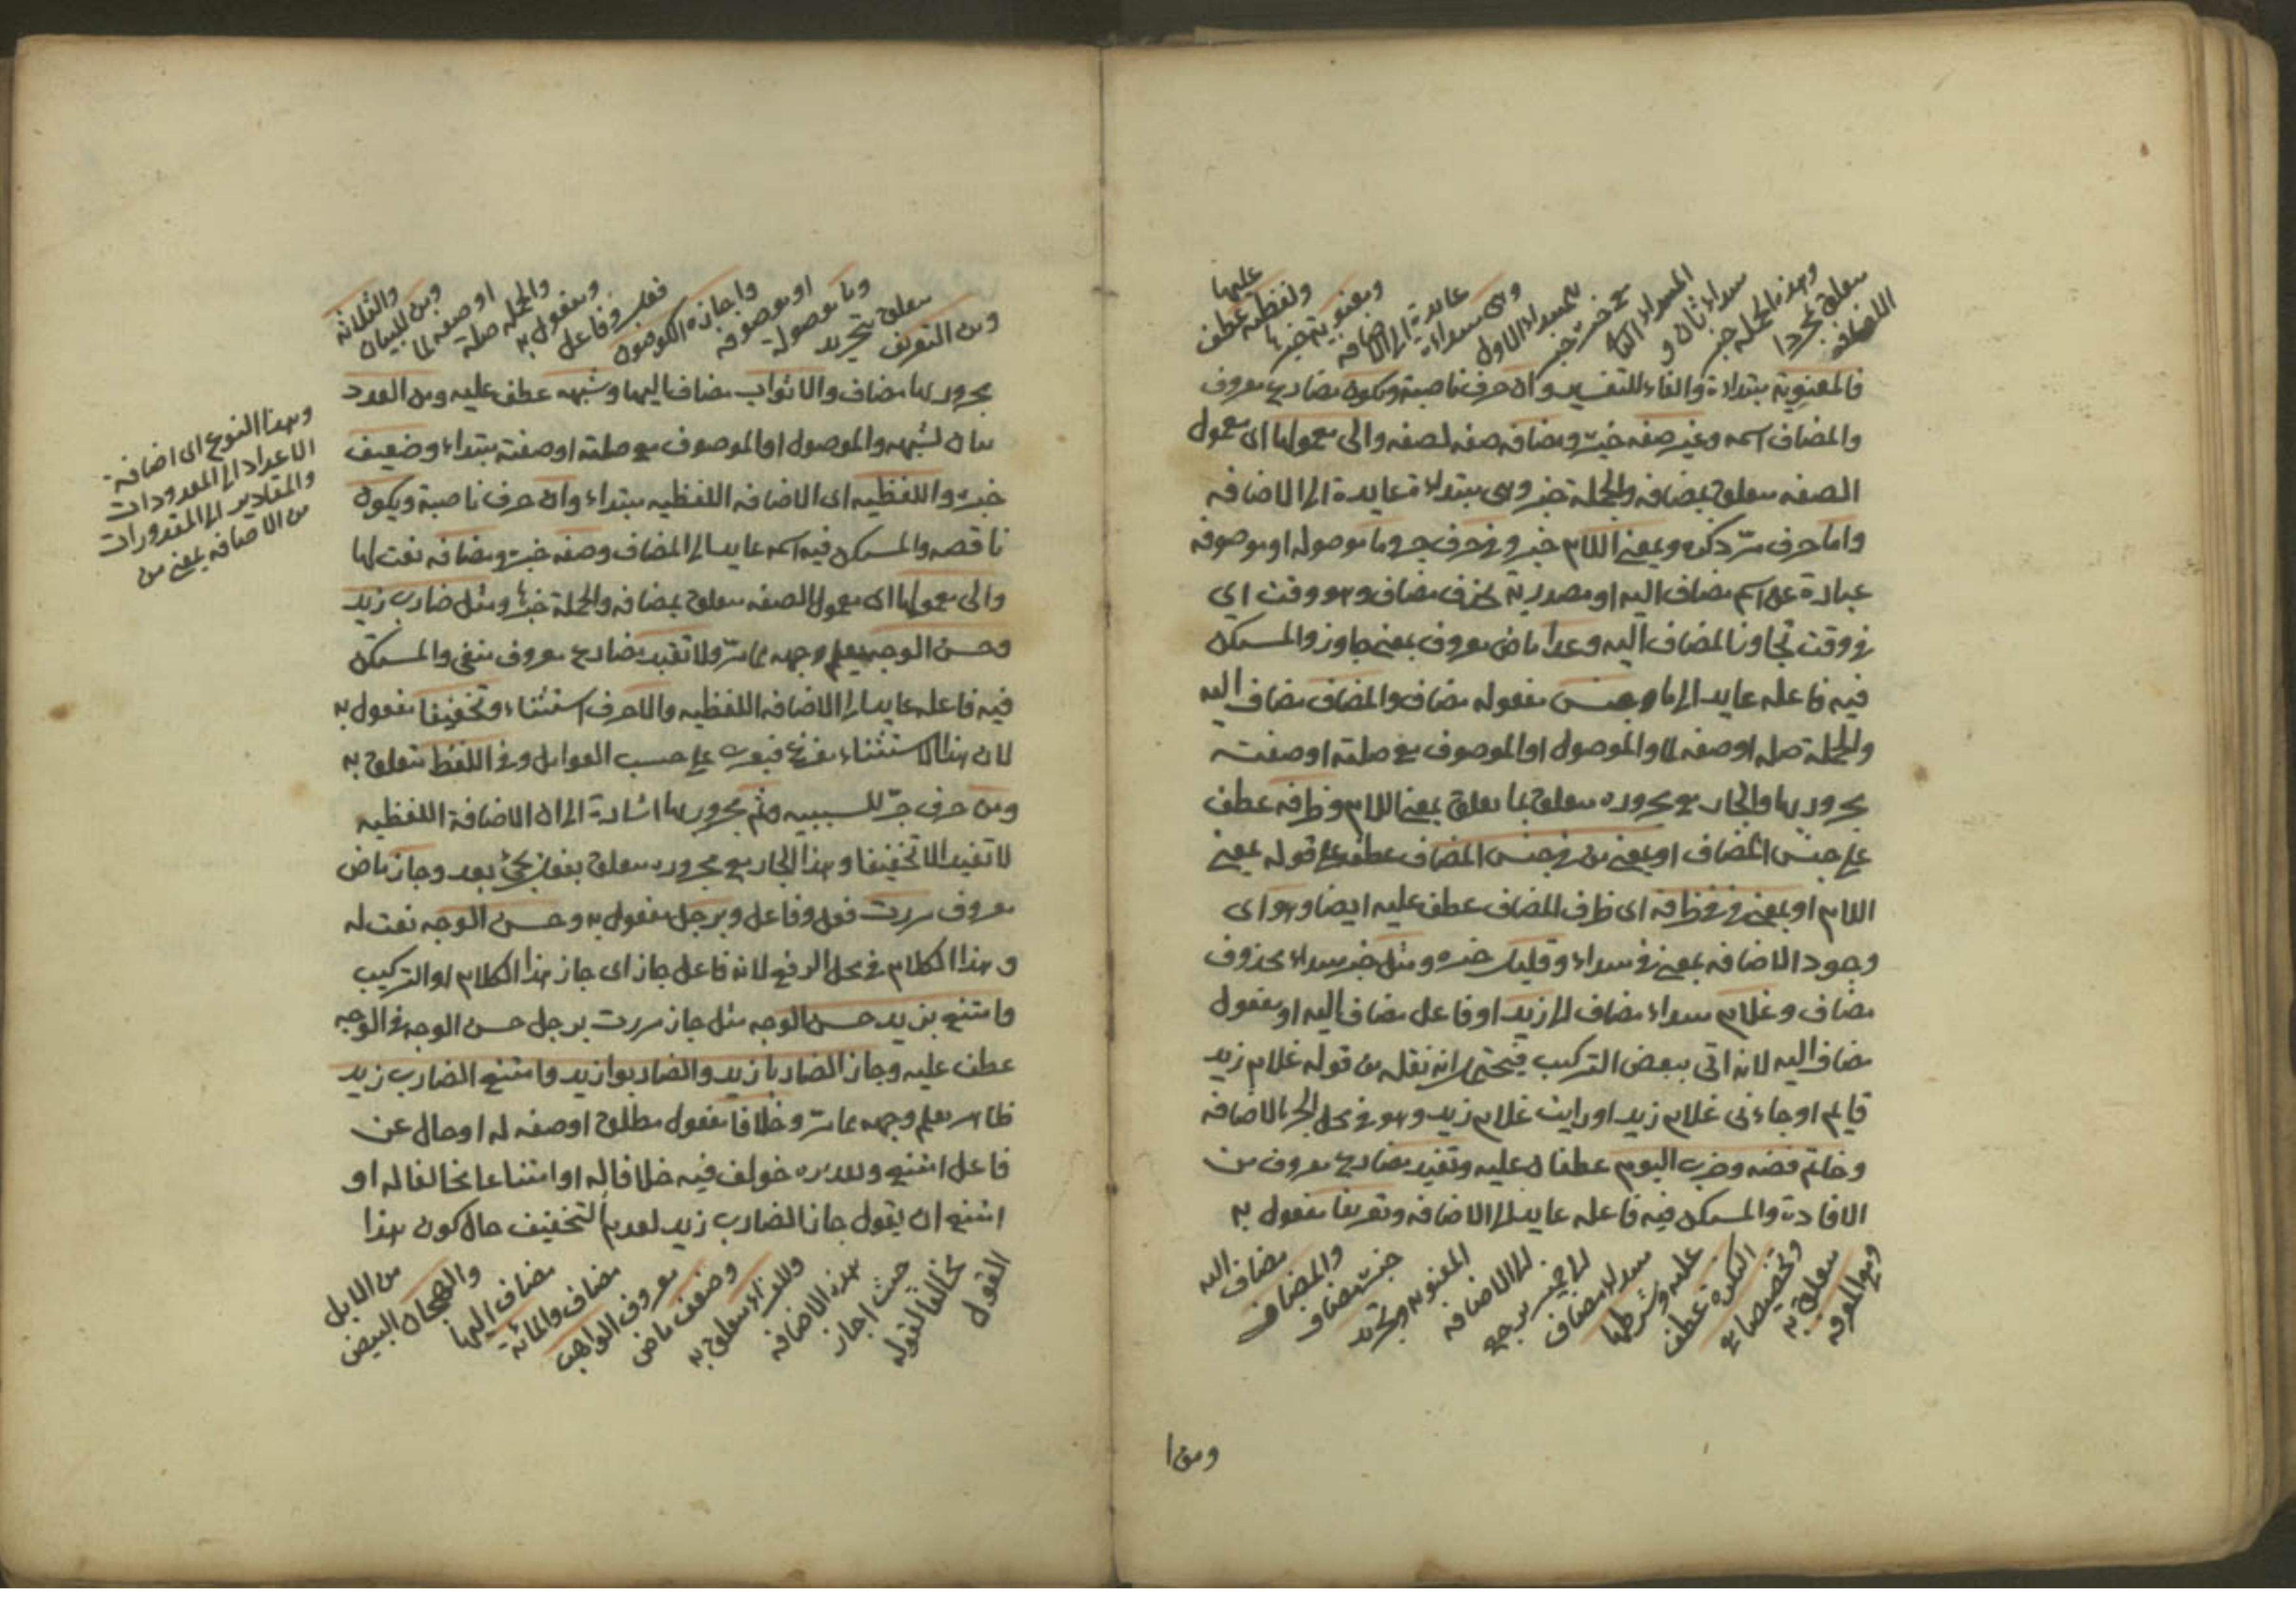 متعلق بمجردا
وهذه الجملة خبر
مبتداء ثان و
المبتداء الثا
مع خبره خبر
للمبتداء الاول
وهى مبتداءة
عايدة الى الاضافه
ومعنوية خبرها
ولفظية عطف
عليها
فالمعنوية مبتداءة والفاء للتفسير وان حرف ناصبة ويكون مضارع معروف
والمضاف اسمه وغير صفه خبره ومضافه صفه لصفه والى معمولها اى معمول
الصفه متعلق بمضافه والجملة خبر وهى مبتداءة عايدة الى الاضافه
واما حرف مرّ ذكره وبمعنى اللام خبر وفى حرف جر وما موصوله او موصوفه
عبارة عن اسم مضاف اليه او مصدرية بحذف مضاف وهو وقت اى
فى وقت تجاوزنا المضاف اليه وعدا ماض معروف بمعنى جاوز والمستكن
فيه فاعله عايد الى ما وجنس مفعوله مضاف والمضاف مضاف اليه
والجملة صله او صفه لما والموصول او الموصوف مع صلته او صفته
مجرور بها والجار مع مجروره متعلق بما تعلق بمعنى اللام وظرفه عطف
على جنس المضاف او بمعنى من فى جنس المضاف عطف على قوله بمعنى
اللام او بمعنى فى فى ظرفه اى ظرف المضاف عطف عليه ايضا وهو اى
وجود الاضافه بمعنى فى مبتداء وقليل خبره ومثل خبر مبتداء محذوف
مضاف وغلام مبتداء مضاف الى زيد او فاعل مضاف اليه او مفعول
مضاف اليه لانه اتى ببعض التركيب فيحتمل انه نقله من قوله غلام زيد
قايم او جاءنى غلام زيد او رايت غلام زيد وهو فى محل الجر بالاضافه
وخاتم فضه وضرب اليوم عطفان عليه وتفيد مضارع معروف من
الافادة والمستكن فيه فاعله عايد الى الاضافه وتعريفا مفعول به
ومع المعرفه
متعلق به
وتخصيصا مع
النكرة عطف
عليه وشرطها
مبتداء مضاف
الى ضمير يرجع
الى الاضافه
المعنويه وتجريد
خبره مضاف
والمضاف
مضاف اليه
ومن ا
ومن التعريف
متعلق بتجريد
وما موصولة
او موصوفه
واجازه الكوفيون
فعل وفاعل
ومفعول به
والجمله صلة
او صفه لما
ومن للبيان
والثلاثه
مجرور بها مضاف والاثواب مضاف اليها وشبهه عطف عليه ومن العدد
بيان لشبهه والموصول او الموصوف مع صلته او صفته مبتداء وضعيف
خبره واللفظيه اى الاضافه اللفظيه مبتداء وان حرف ناصبة ويكون
ناقصه والمستكن فيه اسمه عايد الى المضاف وصفه خبره ومضافه نعت لها
والى معمولها اى معمول الصفه متعلق بمضافه والجملة خبرها ومثل ضارب زيد
وحسن الوجه يعلم وجهه مما مرّ ولا تفيد مضارع معروف منفى والمستكن
فيه فاعله عايد الى الاضافه اللفظيه والا حرف استثناء وتخفيفا مفعول به
لان هذا الاستثناء مفرغ فيعرب على حسب العوامل وفى اللفظ متعلق به
ومن حرف جرّ للسببيه وثم مجرور بها اشارة الى ان الاضافة اللفظيه
لا تفيد الا تخفيفا وهذا الجار مع مجروره متعلق بفعل يجئ بعد وجاز ماض
معروف مررت فعل وفاعل وبرجل مفعول به وحسن الوجه نعت له
وهذا الكلام فى محل الرفع لانه فاعل جاز اى جاز هذا الكلام او التركيب
وامتنع بزيد حسن الوجه مثل جاز مررت برجل حسن الوجه فى الوجه
عطف عليه وجاز الضاربا زيد والضاربوا زيد وامتنع الضارب زيد
ظاهر يعلم وجهه مما مرّ وخلافا مفعول مطلق او صفه له او حال عن
فاعل امتنع وتقديره خولف فيه خلافا له او امتناعا مخالفا له او
امتنع ان يقول جاز الضارب زيد لعدم التخفيف حال كون هذا
القول
مخالفا لقوله
حيث اجاز
هذه الاضافه
وللفراء متعلق به
وضعف ماض
معروف الواهب
مضاف والمائة
مضاف اليها
والهجان البيض
من الابل
وهذا النوع اى اضافة
الاعداد الى المعدودات
والمقادير الى المقدورات
من الاضافه بمعنى من